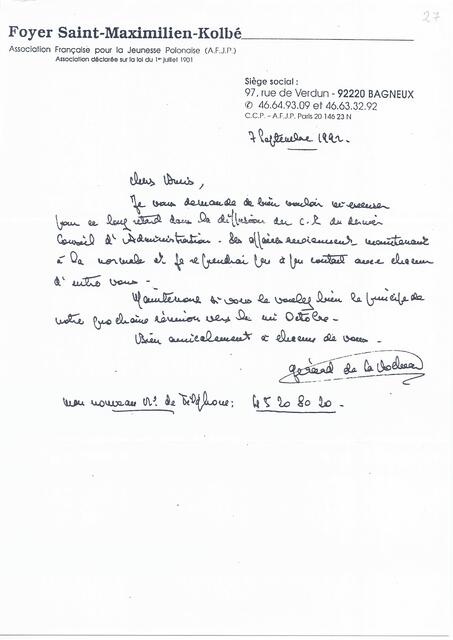 27
Foyer Saint-Maximilien-Kolbé
Association Française pour la Jeunesse Polonaise (A.F.J.P.)
Association déclarée sur la loi du 1er juillet 1901
Siège social :
97, rue de Verdun - 92220 BAGNEUX
✆ 46.64.93.09 et 46.63.32.92
C.C.P. - A.F.J.P. Paris 20 146 23 N
7 Septembre 1992.
Chers Amis,
Je vous demande de bien vouloir m'excuser
pour ce long retard dans la diffusion du C.R. du dernier
Conseil d'Administration. Les affaires reviennent maintenant
à la normale et je reprendrai peu à peu contact avec chacun
d'entre vous.
Maintenons si vous le voulez bien le principe de
notre prochaine réunion vers la mi Octobre.
Bien amicalement à chacun de vous.
Gérard de la
mon nouveau N° de Téléphone : 45 20 80 20.